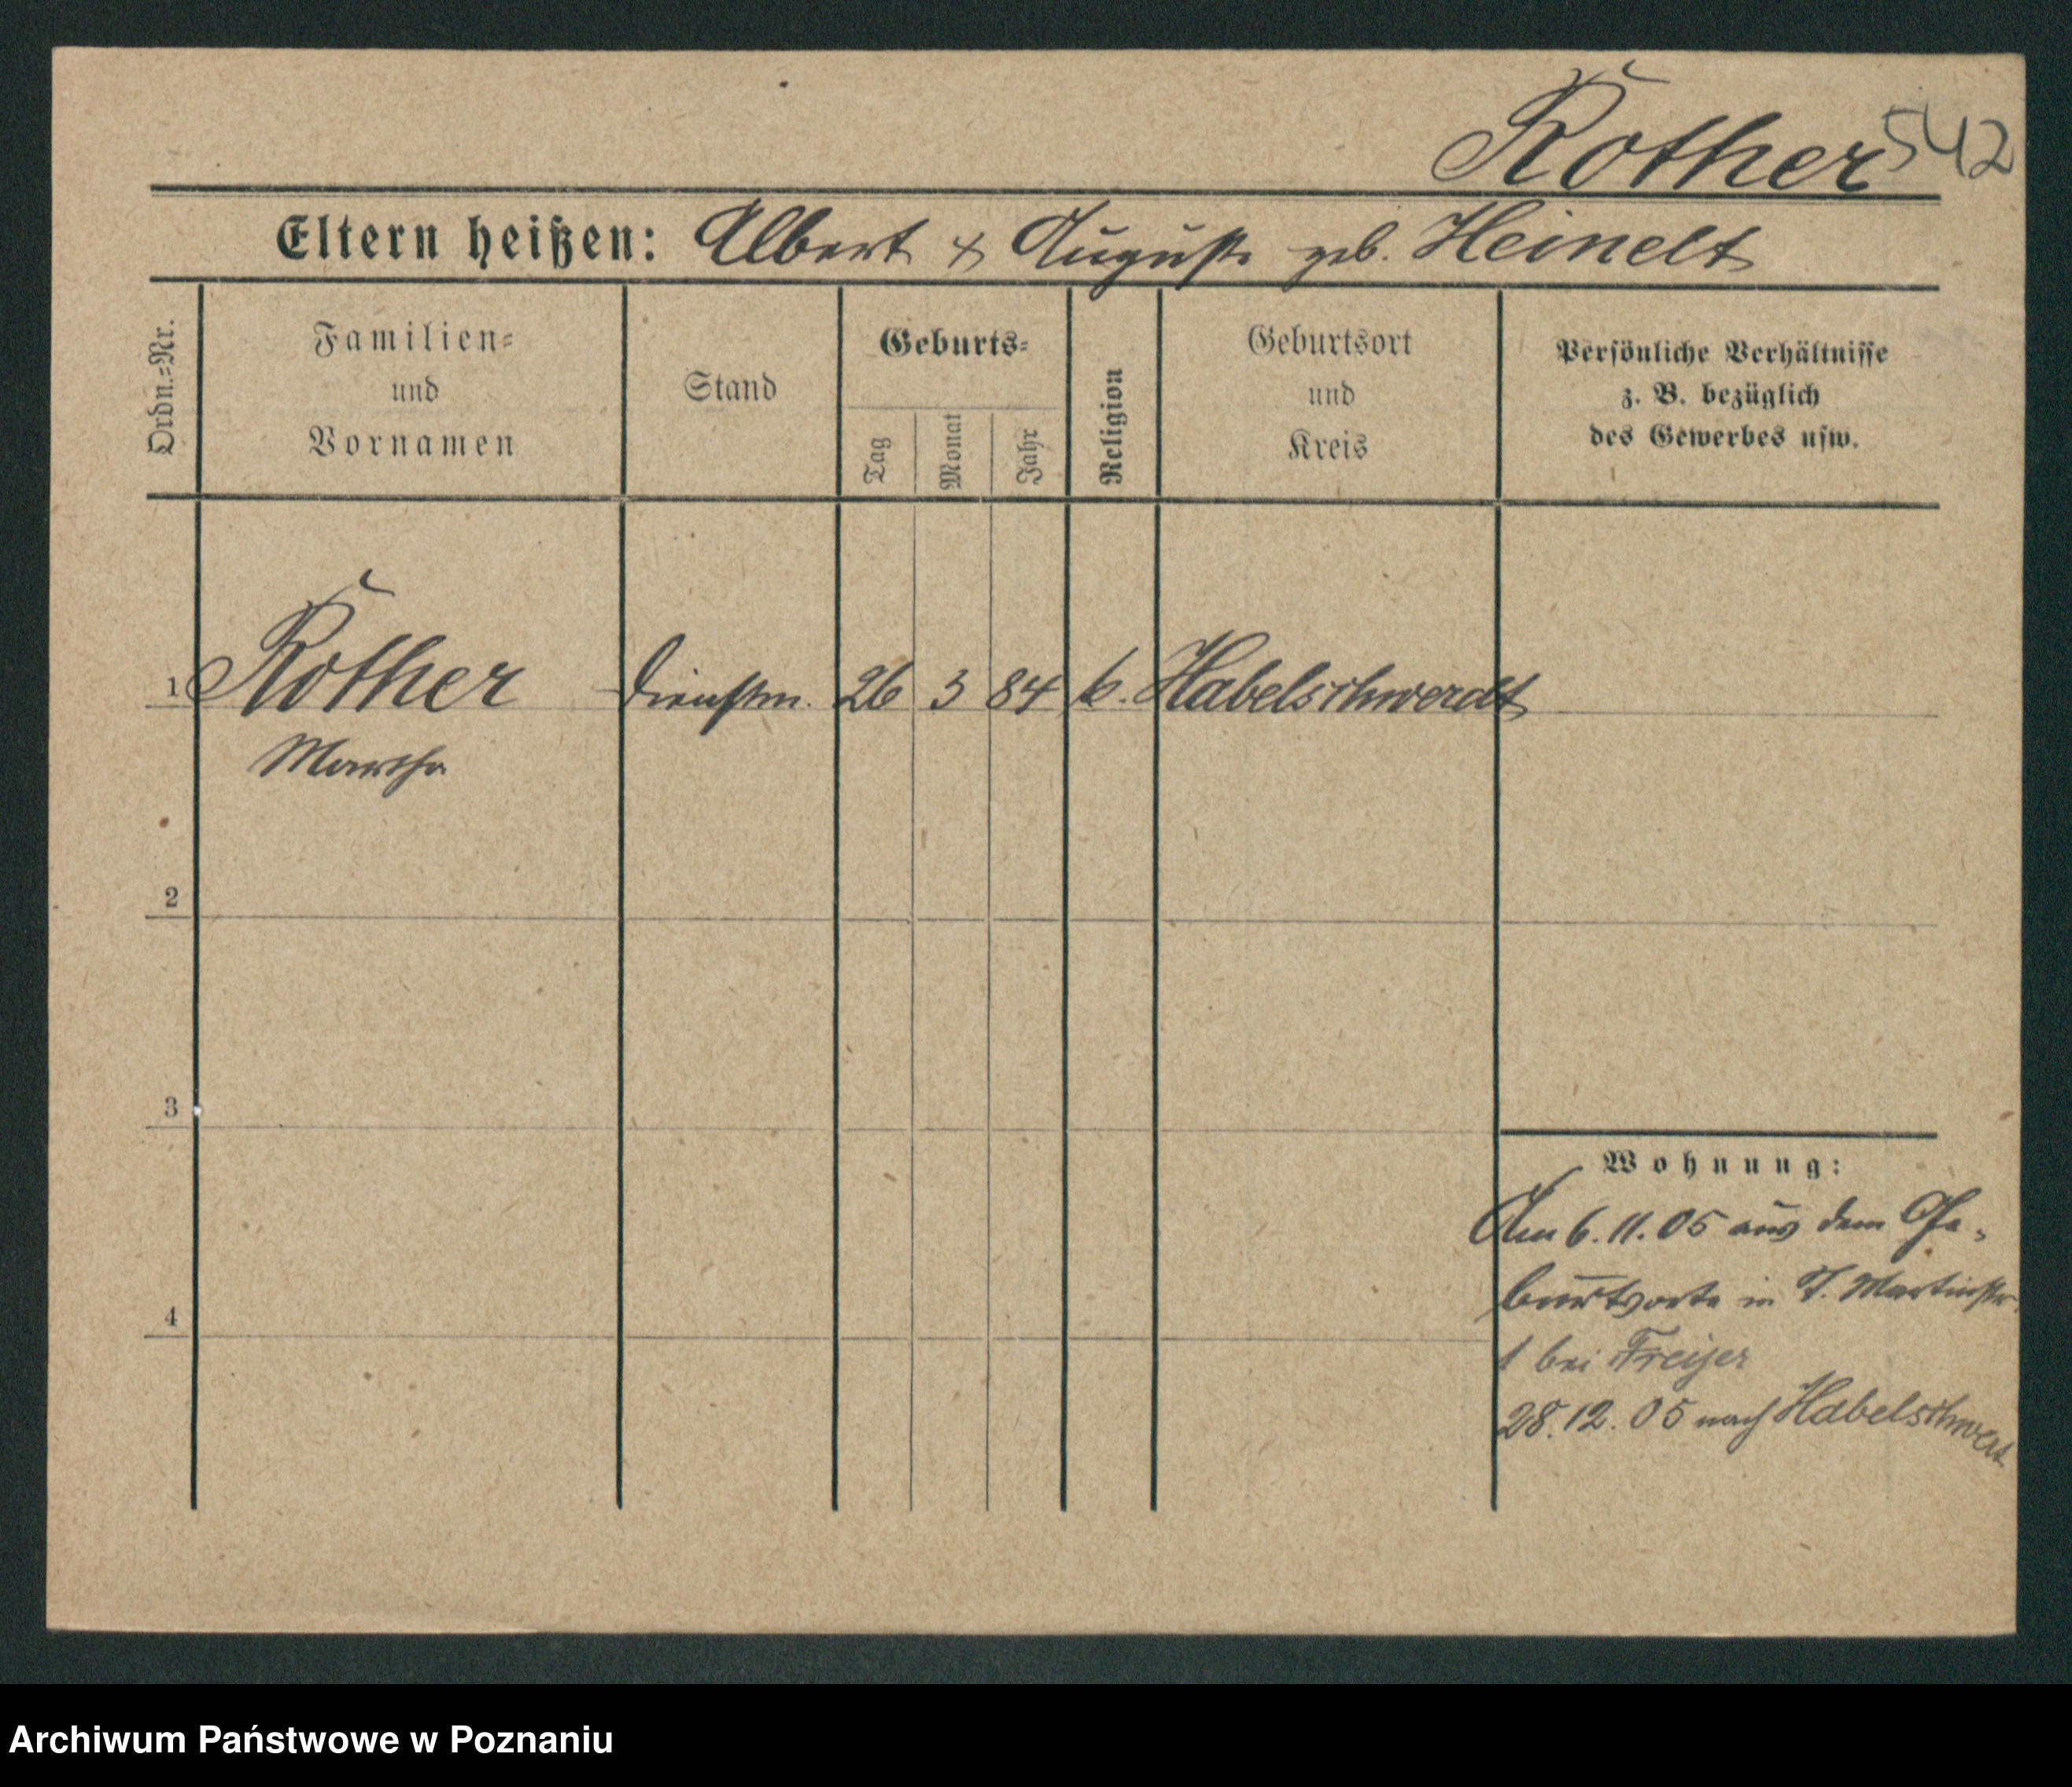 Rother 542
Eltern heißen: Albert & Auguste geb. Heinelt
Ordn.-Nr.
Familien-
und
Vornamen
Stand
Geburts-
Tag
Monat
Jahr
Religion
Geburtsort
und
Kreis
Persönliche Verhältnisse
z. B. bezüglich
des Gewerbes usw.
1 Rother Dienstm. 26 3 84 k. Habelschwerdt
Martha
2
3
4
Wohnung:
Am 6.11.05 aus dem Ge-
burtsorte in St. Martinstr.
1 bei Freijer
28.12.05 nach Habelschwert
Archiwum Państwowe w Poznaniu